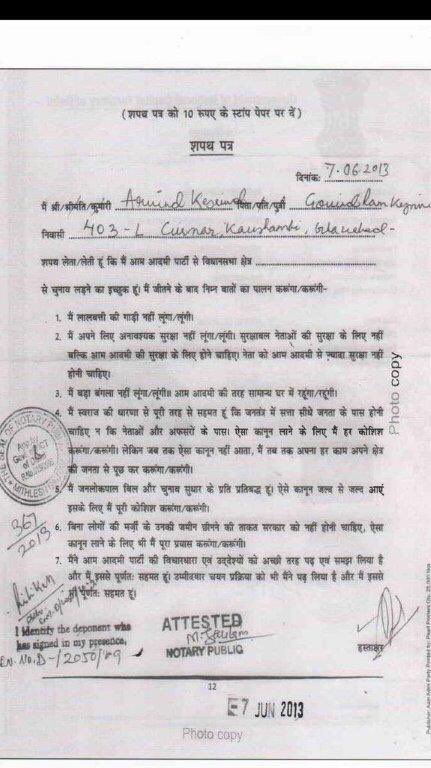 (शपथ पत्र को 10 रूपए के स्टांप पेपर पर दें)
शपथ पत्र
दिनांक: 7.06.2013
मैं श्री/श्रीमति/कुमारी Arvind Kejriwal पिता/पति/पुत्री Gobind Ram
निवासी 403-L Kaushambi, Ghaziabad-
शपथ लेता/लेती हूं कि मैं आम आदमी पार्टी से विधानसभा क्षेत्र
से चुनाव लड़ने का इच्छुक हूं। मैं जीतने के बाद निम्न बातों का पालन करूंगा/करूंगी-
1. मैं लालबत्ती की गाड़ी नहीं लूंगा/लूंगी।
2. मैं अपने लिए अनावश्यक सुरक्षा नहीं लूंगा/लूंगी। सुरक्षाबल नेताओं की सुरक्षा के लिए नहीं
बल्कि आम आदमी की सुरक्षा के लिए होने चाहिए। नेता को आम आदमी से ज्यादा सुरक्षा नहीं
होनी चाहिए।
3. मैं बड़ा बंगला नहीं लूंगा/लूंगी॥ आम आदमी की तरह सामान्य घर में रहूंगा/रहूंगी।
4. मैं स्वराज की धारणा से पूरी तरह से सहमत हूं कि जनतंत्र में सत्ता सीधे जनता के पास होनी
चाहिए न कि नेताओं और अफसरों के पास। ऐसा कानून लाने के लिए मैं हर कोशिश
करूंगा/करूंगी। लेकिन जब तक ऐसा कानून नहीं आता, मैं तब तक अपना हर काम अपने क्षेत्र
की जनता से पूछ कर करूंगा/करूंगी।
5. मैं जनलोकपाल बिल और चुनाव सुधार के प्रति प्रतिबद्ध हूं। ऐसे कानून जल्द से जल्द आएं
इसके लिए मैं पूरी कोशिश करूंगा/करूंगी।
6. बिना लोगों की मर्ज़ी के उनकी जमीन छीनने की ताकत सरकार को नहीं होनी चाहिए, ऐसा
कानून लाने के लिए भी मैं पूरा प्रयास करूंगा/करूंगी।
7. मैंने आम आदमी पार्टी की विचारधारा एवं उद्देश्यों को अच्छी तरह पढ़ एवं समझ लिया है
और मैं इससे पूर्णतः सहमत हूं। उम्मीदवार चयन प्रक्रिया को भी मैंने पढ़ लिया है और मैं इससे
भी पूर्णतः सहमत हूं।
NOTARY PUBLIC
361/2013
I identify the deponent who
has signed in my presence,
EN. No. D-/2050/09
ATTESTED
NOTARY PUBLIC
हस्ताक्षर
Photo copy
12
7 JUN 2013
Photo copy